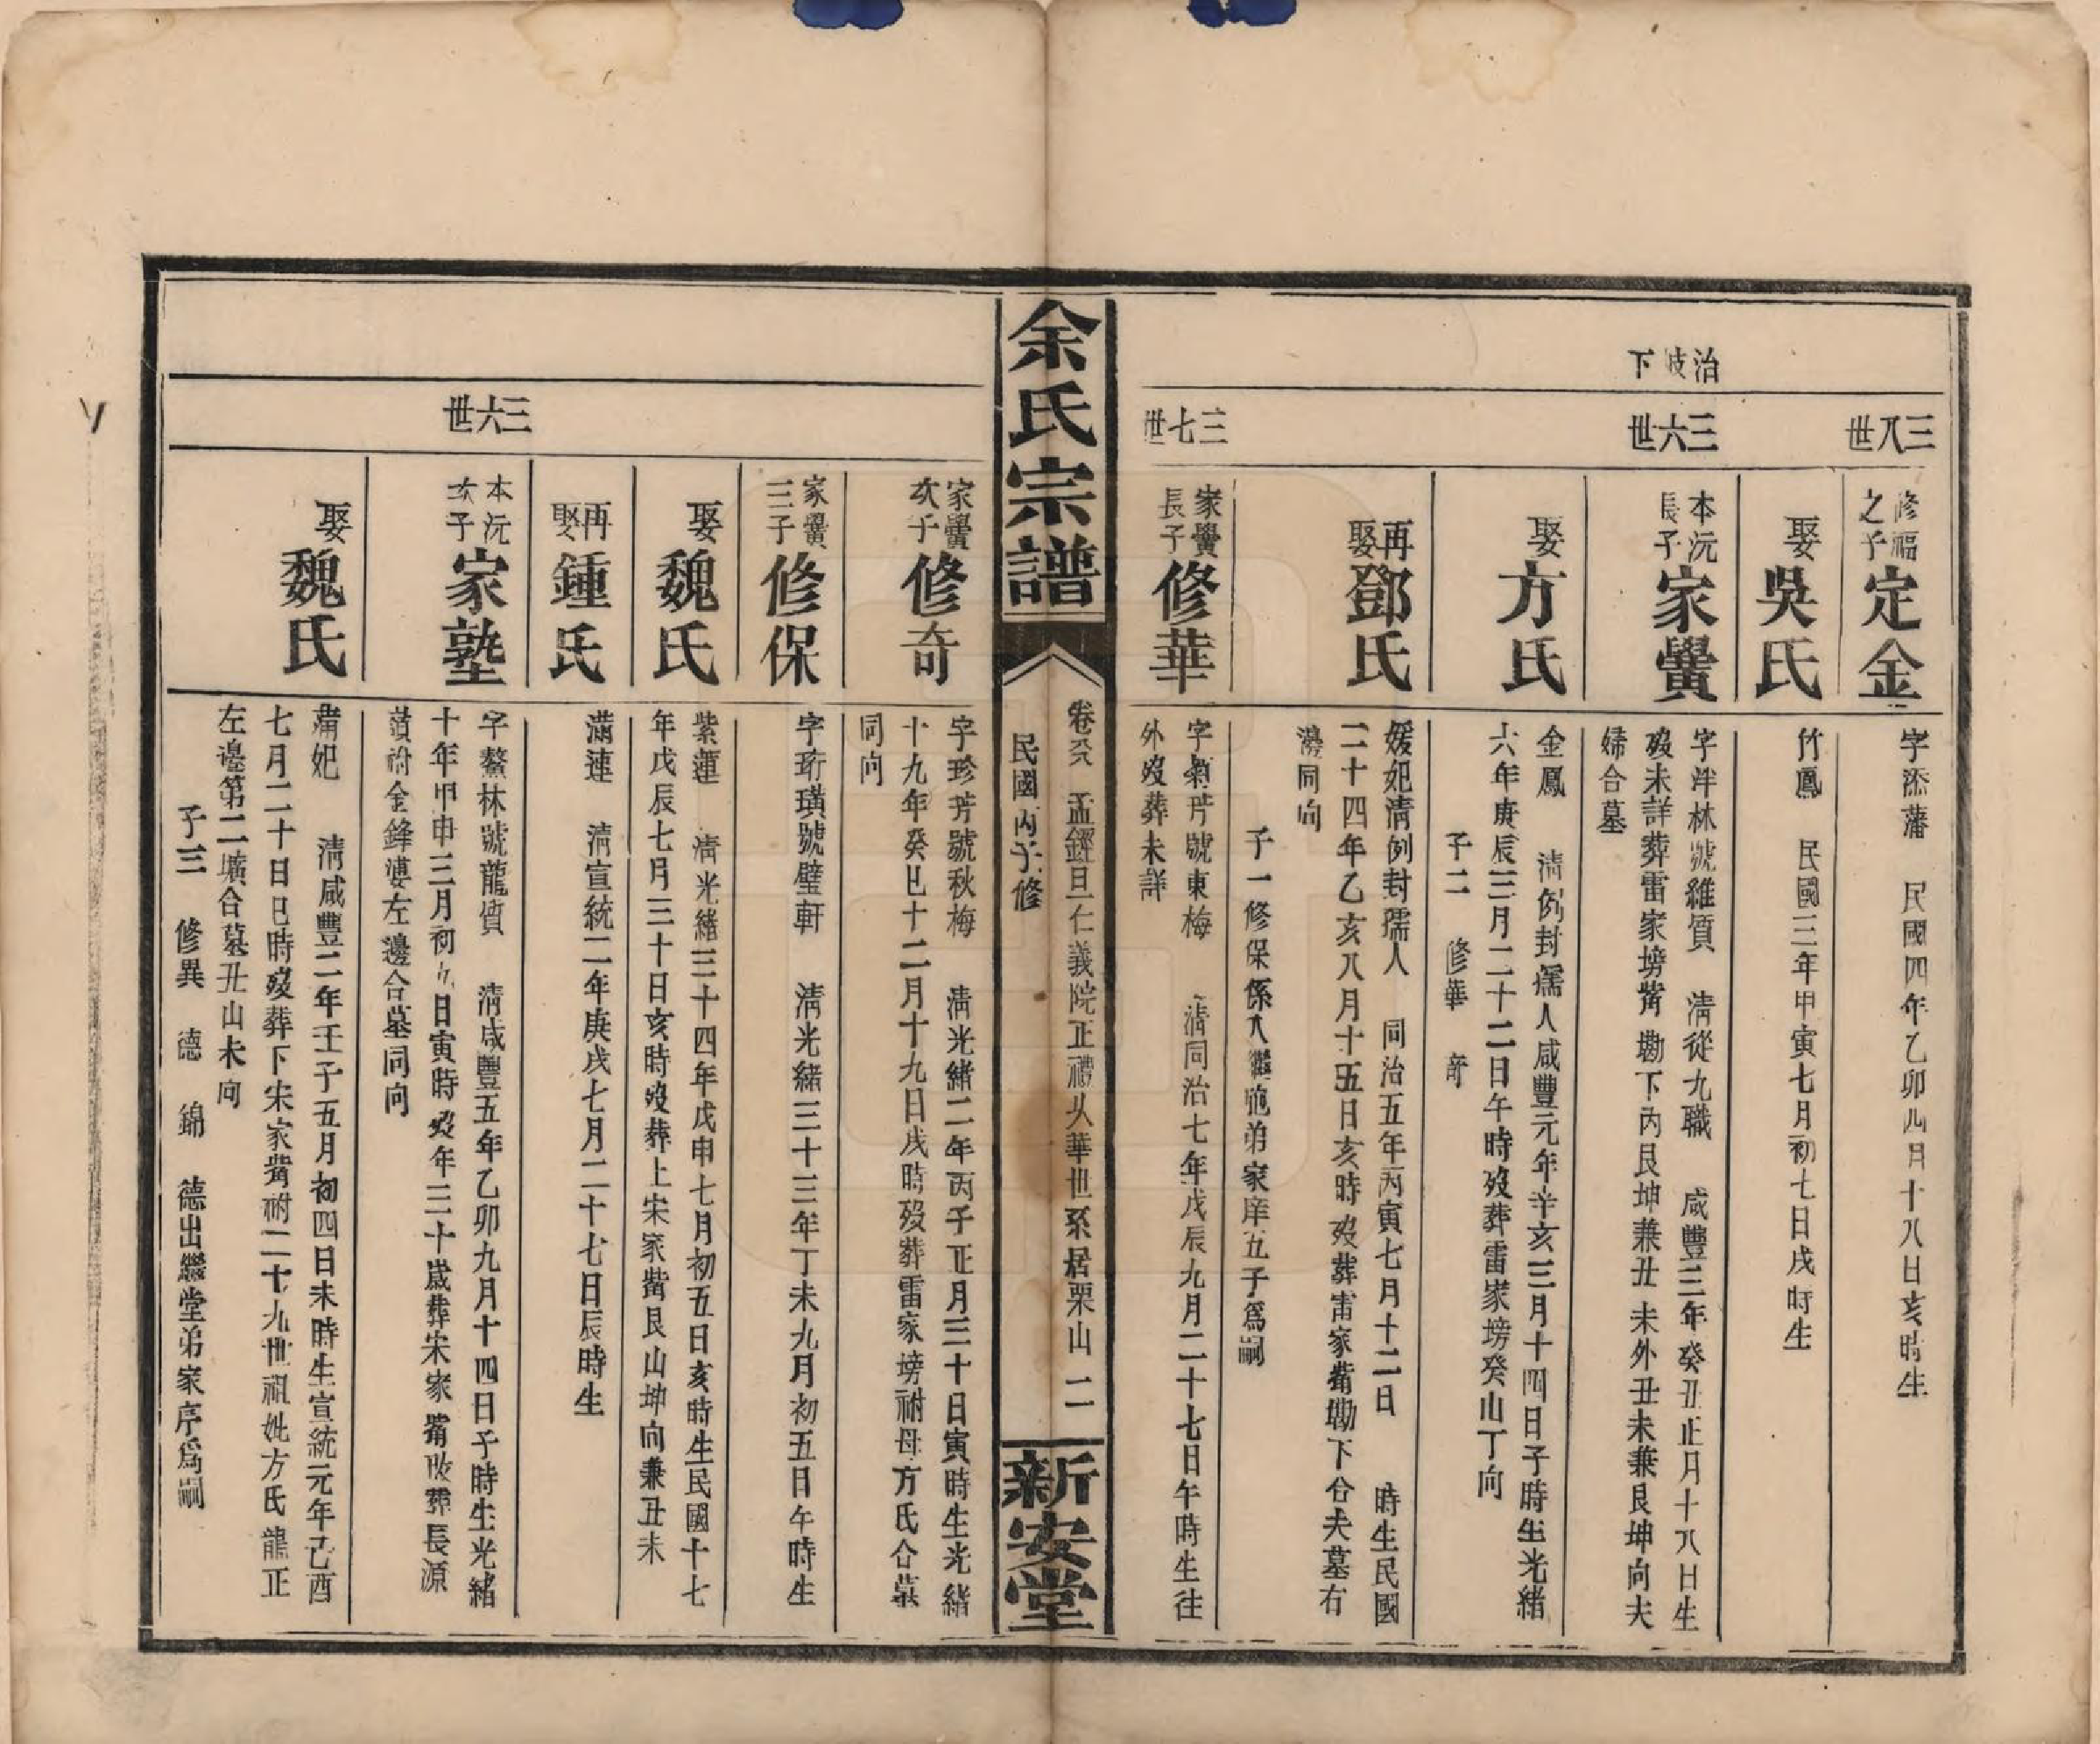 治岐下
三八世
修福之子定金
字添藩 民國四年乙卯四月十八日亥時生
娶吳氏
竹鳳 民國三年甲寅七月初七日戌時生
三六世
本沅長子家黌
字泮林號維質 清從九職 咸豐三年癸丑正月十八日生
歿未詳葬雷家塝觜磡下內艮坤兼丑未外丑未兼艮坤向夫
婦合墓
娶方氏
金鳳 清例封孺人咸豐元年辛亥三月十四日子時生光緒
六年庚辰三月二十二日午時歿葬雷家塝癸山丁向
子二 修華 奇
再娶鄧氏
媛妃清例封孺人 同治五年丙寅七月十二日 時生民國
二十四年乙亥八月十五日亥時歿葬雷家觜磡下合夫墓右
邊同向
子一修保係入繼胞弟家庠五子爲嗣
三七世
家黌長子修華
字菊芳號東梅 清同治七年戊辰九月二十七日午時生往
外歿葬未詳
余氏宗譜
卷癸 孟鏗旦仁義院正禮乆華世系居栗山 二一
民國丙子修
新安堂
家黌次子修奇
字珍芳號秋梅 清光緒二年丙子正月三十日寅時生光緒
十九年癸巳十二月十九日戌時歿葬雷家塝祔母方氏合墓
同向
家黌三子修保
字珩璜號璧軒 清光緒三十三年丁未九月初五日午時生
娶魏氏
紫蓮 清光緒三十四年戊申七月初五日亥時生民國十七
年戊辰七月三十日亥時歿葬上宋家觜艮山坤向兼丑未
再娶鍾氏
滿連 清宣統二年庚戌七月二十七日辰時生
三六世
本沅次子家塾
字鰲林號龍質 清咸豐五年乙卯九月十四日子時生光緒
十年甲申三月初九日寅時歿年三十歲葬宋家觜改葬長源
嶺祔金鋒婆左邊合墓同向
娶魏氏
蒲妃 清咸豐二年壬子五月初四日未時生宣統元年己酉
七月二十日巳時歿葬下宋家觜祔二十九世祖妣方氏龍正
左邊第二壙合墓丑山未向
子三 修異 德 錦 德出繼堂弟家序爲嗣